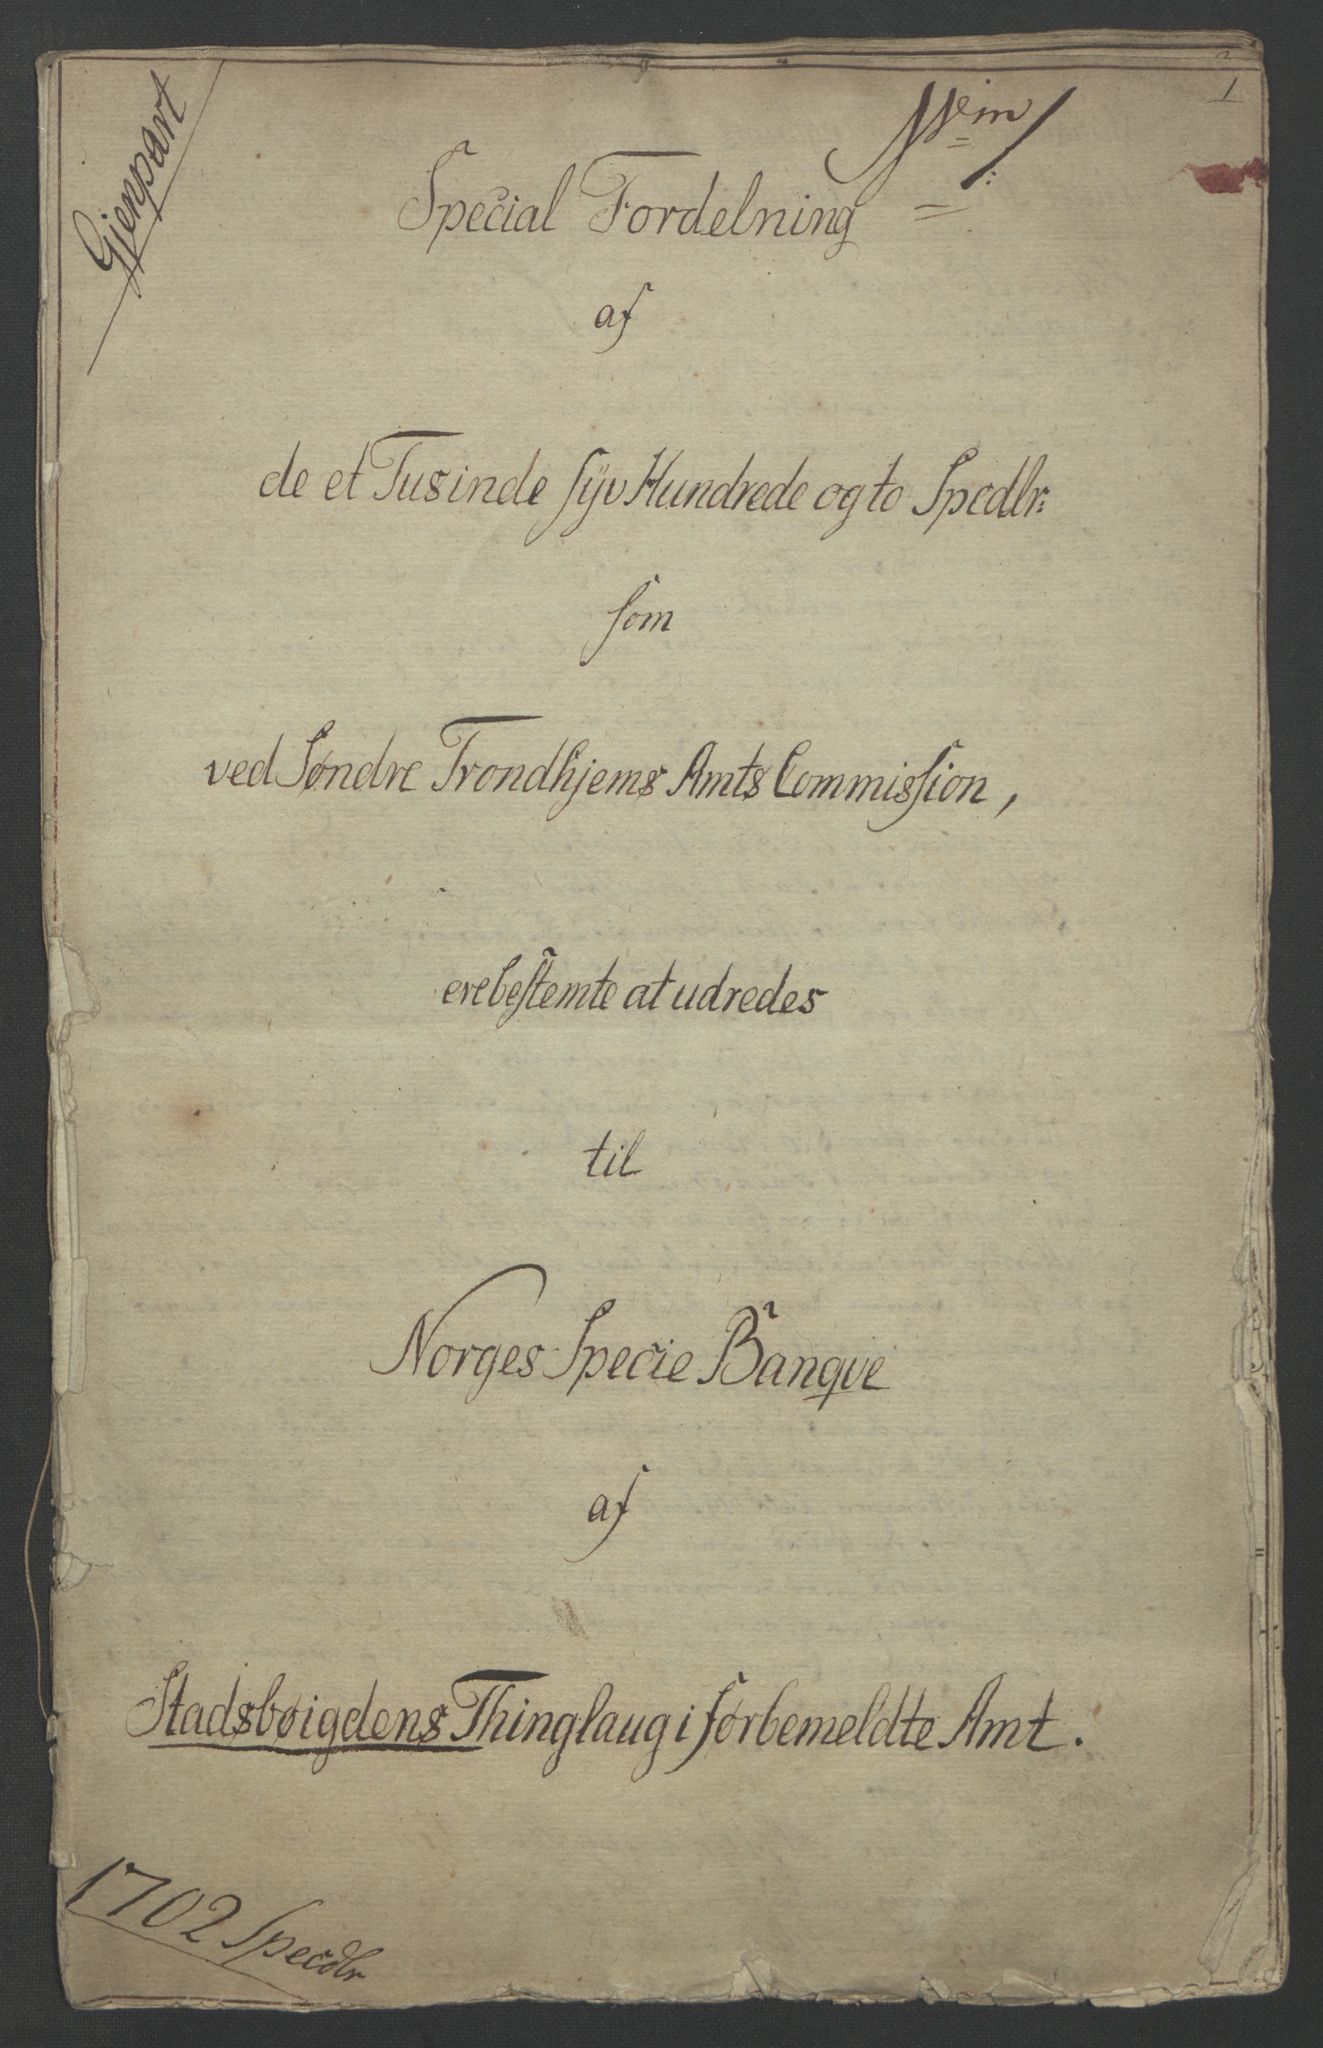 1
Gjenpart
Special Fordelning
af
de et Tusinde syv Hundrede og to Spcdlr:
som
ved Søndre Trondhjems Amts Commission,
ere bestemte at udredes
til
Norges Specie Banqve
af
Stadsbøigdens Thinglaug i førbemeldte Amt.
1702 Specdlr